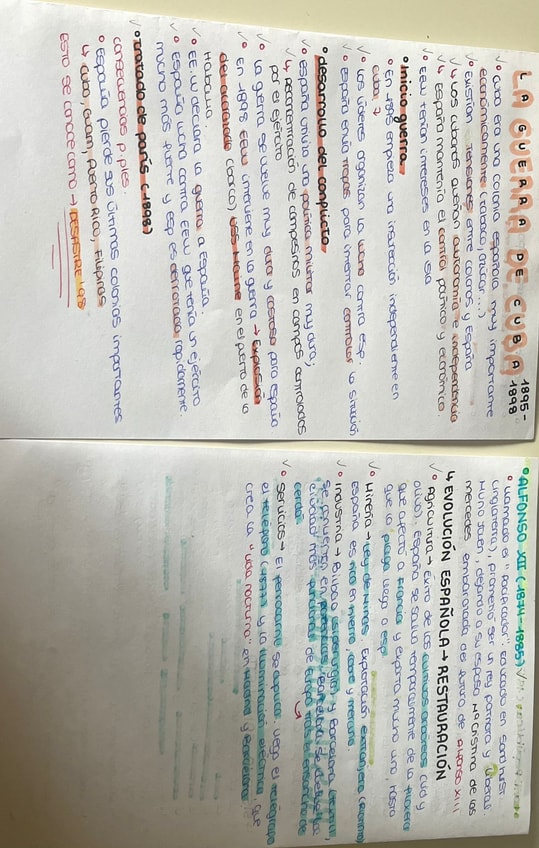 LA GUERRA DE CUBA 1895-
1898
° Cuba era una colonia española muy importante
económicamente (tabaco, azúcar...)
° Existían tensiones entre colonos y España
↳ Los cubanos querían autonomía e independencia
↳ España mantenía el control político y económico.
° EEUU tenían intereses en la isla
° Inicio guerra
° En 1895 empieza una insurrección independentista en
cuba
° Los líderes organizan la lucha contra esp.
° España envía tropas para intentar controlar la situación
° desarrollo del conflicto
° España utiliza una política militar muy dura;
↳ reconcentración de campesinos en campos controlados
por el ejército
° la guerra se vuelve muy dura y costosa para españa
° En 1898 EEUU interviene en la guerra → Explosión
del acorazado (barco) USS Maine en el puerto de la
Habana.
° EE.UU declara la guerra a España.
° España lucha contra EEUU que tenía un ejército
mucho más fuerte y esp es derrotada rápidamente.
° tratado de parís (1898)
consecuencias pples.
° España pierde sus últimas colonias importantes
↳ cuba, Guam, Puerto Rico, Filipinas
ESTO se conoce como → DESASTRE 98
° ALFONSO XII (1874-1885)
° Llamado el "Pacificador". Educado en Sandhurst
(inglaterra), prometió ser un rey y liberal.
Murió joven, dejando a su esposa Mª Cristina de las
mercedes, embarazada del futuro de Alfonso XIII
↳ EVOLUCIÓN ESPAÑOLA - RESTAURACIÓN
° Agricultura → Éxito de los cultivos (vid y
olivo). España se salva temporalmente de la filoxera
que afectó a Francia y exporta mucho vino, hasta
que la plaga llega a esp
° Minería → Ley de Minas. Explotación extranjera
España es rica en hierro, cobre y mercurio
° Industria → Bilbao (siderurgia) y Barcelona (textil),
se convierten en potencias. Barcelona se
ciudad más de Europa tras el ensanche de
cerdà
° Servicios → El ferrocarril se expande. Llega el telégrafo
el teléfono (1877) y la iluminación eléctrica que
crea la "vida nocturna" en Madrid y Barcelona